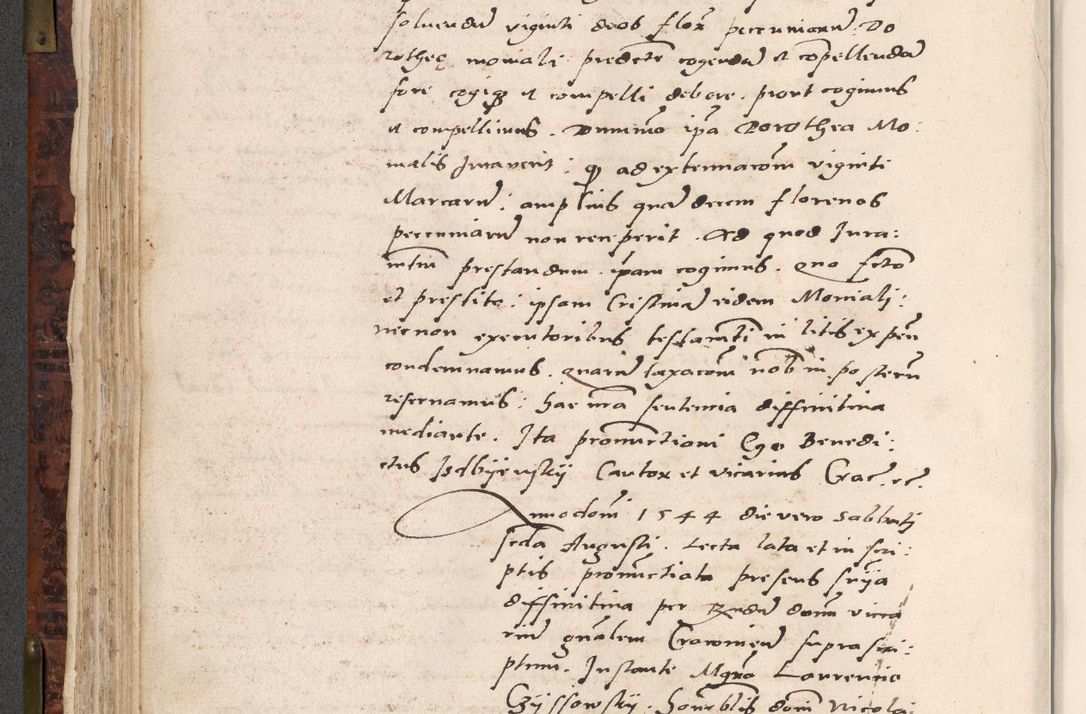 soluendum viginti deos flor pecuniarum Do
rotheę moniali predicte cogendam et compellendam
fore cogiq et compelli debere . prout cogimus
et compellimus . Dummo ipa Dorothea Mo:
nialis Juraverit : q ad extenuacom viginti
Marcarum : amplius quam decem florenos
pecuniarum non reneperit . Ad quod Jura:
mtum prestandum . ipam cogimus . Quo fcto
et prestito : ipsam Cristinam eidem Moniali :
necnon executoribus testamti in litis expen
condemnamus . quarum taxacom nob in posterum
reservamus : hac nra sentencia diffinitiva
mediante . Ita pronunctioni Ego Benedi:
ctus Isdbijenskij Cantor et vicarius Crac . rc
Anno domi 1544 die vero Sabbati
scda Augusti . Lecta lata et in scri:
ptis pronunctiata presens snija
diffinitiva per Rndum domi vica
rium gnalem Cracovien supra scri:
ptum . Instante Mgro Laurencio
Czyssowskij . honorblis domi Nicolai